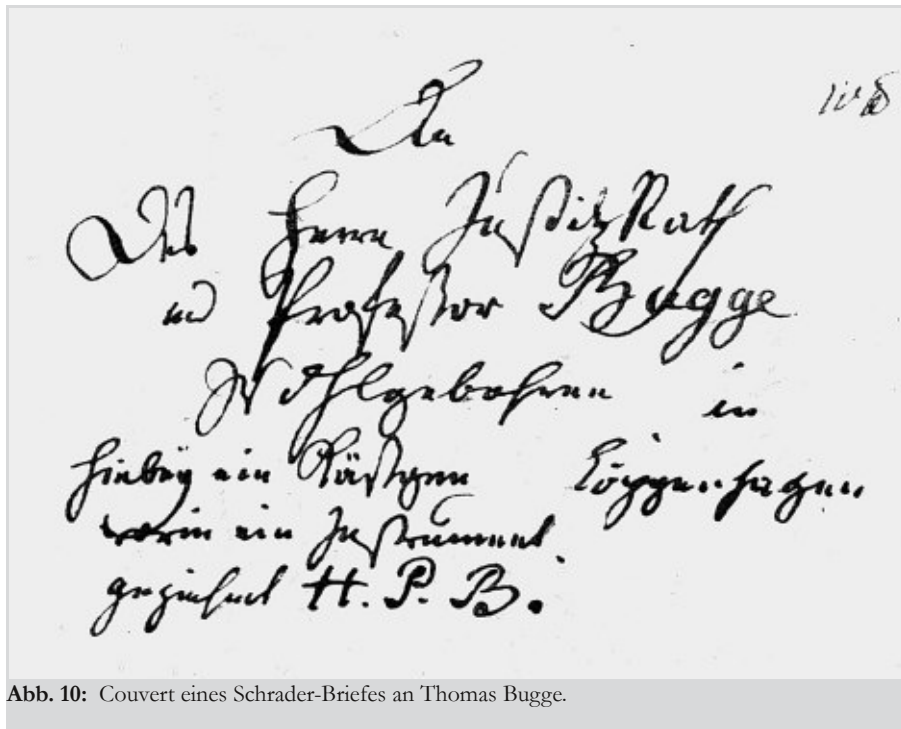 An
Des Herrn JustizRath
und Professor Bugge
Wohlgebohren in
hiebey ein Kästgen Coppenhagen
worin ein Instrument
gezeichnet H. P. B.
Abb. 10: Couvert eines Schrader-Briefes an Thomas Bugge.